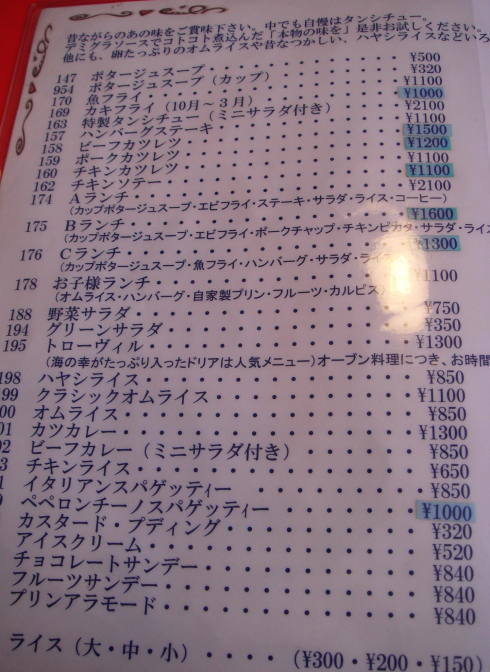 昔ながらのあの味をご賞味下さい。中でも自慢はタンシチュー。
デミグラソースでコトコト煮込んだ「本物の味を」是非お試しください。
他にも、卵たっぷりのオムライスや昔なつかしい、ハヤシライスなどいろ
147 ポタージュスープ・・・・・・・・・・ ¥500
954 ポタージュスープ（カップ）・・・・・・・ ¥320
170 魚フライ・・・・・・・・・・・・・ ¥1100
169 カキフライ（10月～3月）・・・・・・・ ¥1000
163 特製タンシチュー（ミニサラダ付き）・・・・ ¥2100
157 ハンバーグステーキ・・・・・・・・・ ¥1100
158 ビーフカツレツ・・・・・・・・・・・ ¥1500
159 ポークカツレツ・・・・・・・・・・・ ¥1200
160 チキンカツレツ・・・・・・・・・・・ ¥1100
162 チキンソテー・・・・・・・・・・・・ ¥1100
174 Aランチ・・・・・・・・・・・・・・ ¥2100
（カップポタージュスープ・エビフライ・ステーキ・サラダ・ライス・コーヒー）
175 Bランチ・・・・・・・・・・・・・・ ¥1600
（カップポタージュスープ・エビフライ・ポークチャップ・チキンピカタ・サラダ・ライス
176 Cランチ・・・・・・・・・・・・・・ ¥1300
（カップポタージュスープ・魚フライ・ハンバーグ・サラダ・ライ
178 お子様ランチ・・・・・・・・・・・・ ¥1100
（オムライス・ハンバーグ・自家製プリン・フルーツ・カルピス）
188 野菜サラダ・・・・・・・・・・・・・ ¥750
194 グリーンサラダ・・・・・・・・・・・ ¥350
195 トローヴィル・・・・・・・・・・・・ ¥1300
（海の幸がたっぷり入ったドリアは人気メニュー）オーブン料理につき、お時間
198 ハヤシライス・・・・・・・・・・・・ ¥850
99 クラシックオムライス・・・・・・・・・ ¥1100
00 オムライス・・・・・・・・・・・・・ ¥850
01 カツカレー・・・・・・・・・・・・・ ¥1300
02 ビーフカレー（ミニサラダ付き）・・・・・・ ¥850
3 チキンライス・・・・・・・・・・・・ ¥650
イタリアンスパゲッティー・・・・・・・・ ¥850
ペペロンチーノスパゲッティー・・・・・・ ¥1000
カスタード・プディング・・・・・・・・・ ¥320
アイスクリーム・・・・・・・・・・・・ ¥520
チョコレートサンデー・・・・・・・・・・ ¥840
フルーツサンデー・・・・・・・・・・・ ¥840
プリンアラモード・・・・・・・・・・・ ¥840
ライス（大・中・小）・・・・（¥300・¥200・¥150）